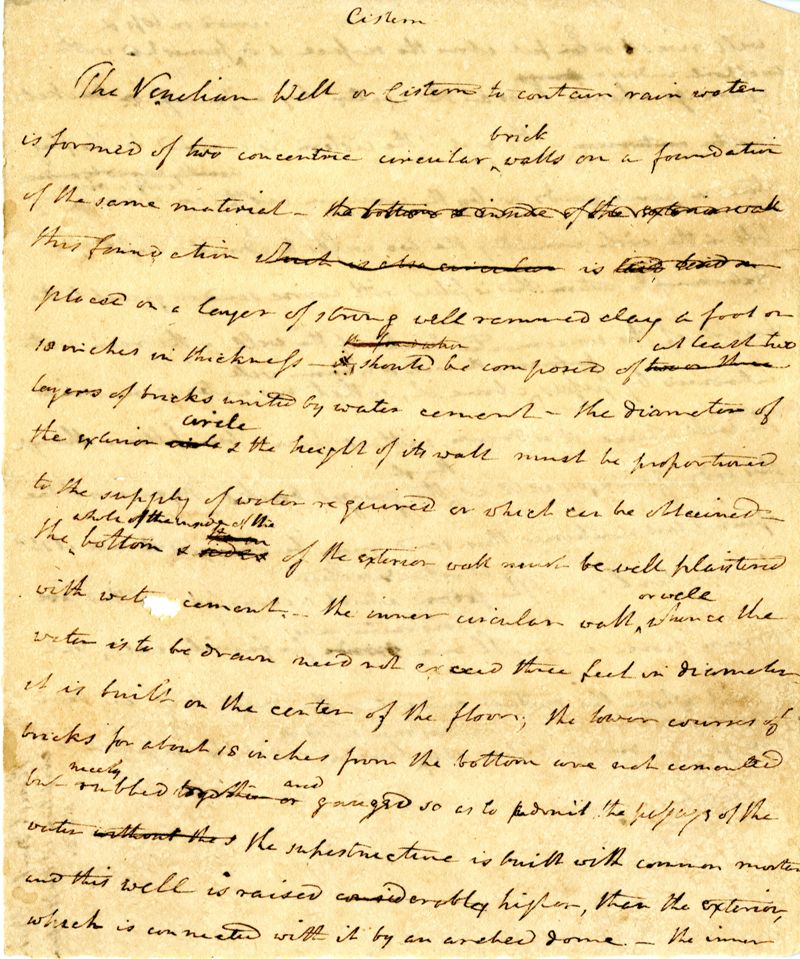 Cistern
The Venetian Well or Cistern to contain rain water
brick
is formed of two concentric circular walls on a foundation
of the same material – the bottom & inside of the exterior wall
this foundation which is also circular is laid
placed on a layer of strong well rammed clay a foot or
the foundation at least two
18 inches in thickness – it, should be composed of two or three
layers of bricks united by water cement – the diameter of
circle
the exterior circle & the height of its wall must be proportioned
to the supply of water required or which can be obtained –
whole of the inside of the
the bottom & sides of the exterior wall must be well plaistered
with wate cement. – the inner circular wall, whence the
or well
water is to be drawn need not exceed three feet in diameter
it is built on the center of the floor; the lower courses of
bricks for about 18 inches from the bottom are not cemented
nicely and
but rubbed together or gauged so as to admit the passage of the
water without the s the superstructure is built with common mortar
and this well is raised considerably higher, than the exterior,
which is connected with it by an arched dome. – the inner